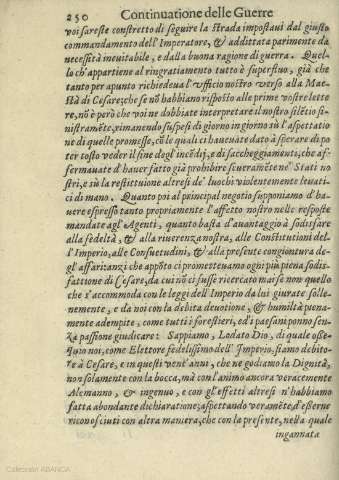 250 Continuatione delle Guerre
voi sareste constretto di seguire la strada impostaui dal giusto
commandamento dell'Imperatore, & additata parimente da
necessità ineuitabile, e dalla buona ragione di guerra. Quel-
lo ch'appartiene al ringratiamento tutto è superfluo, già che
tanto per apunto richiedeua l'vfficio nostro verso alla Mae-
stà di Cesare; che se nõ habbiamo risposto alle prime vostre lette
re, nõ è però che voi ne dobbiate interpretare il nostro silẽtio si-
nistramẽte, rimanendo suspesi di giorno in giorno sù l'aspettatio
ne di quelle promesse, cõ le quali ci haueuate dato à sperare di po
ter tosto veder il fine degl'incẽdij, e di saccheggiamenti, che af-
fermauate d'hauer fatto già prohibire seueramẽte ne' Stati no
stri, e sù la restittuione altresì de' luochi violentemente leuati-
ci di mano. Quanto poi al principal negotio supponiamo d'ha-
uere espresso tanto propriamente l'affetto nostro nelle resposte
mandate agl'Agenti, quanto basta d'auantaggio à sodisfare
alla fedeltà, & alla riuerenza nostra, alle Constitutioni del-
l'Imperio, alle Consuetudini, & alla presente congiontura de-
gl'affari tanzi che appõto ci prometteuamo ogni più piena sodis-
fattione di Cesare, da cui nõ ci fusse ricercato mai se non quello
che s'accommoda con le leggi dell'Imperio da lui giurate solle-
nemente, e da noi con la debita deuotione, & humiltà piena-
mente adempite, come tutti i forestieri, ed i paesani ponno sen-
za passione giudicare: Sappiamo, Lodato Dio, di quale osse-
quio noi, come Elettore fedelissimo dell'Imperio, siamo debito-
re à Cesare, e in questi vent'anni, che ne godiamo la Dignità,
non solamente con la bocca, mà con l'animo ancora veracemente
Alemanno, & ingenuo, e con gl'effetti altresì n'habbiamo
fatta abondante dichiaratione; aspettando veramẽte d'esserne
riconosciuti con altra maniera, che con la presente, nella quale
ingannata
Colección ABANCA